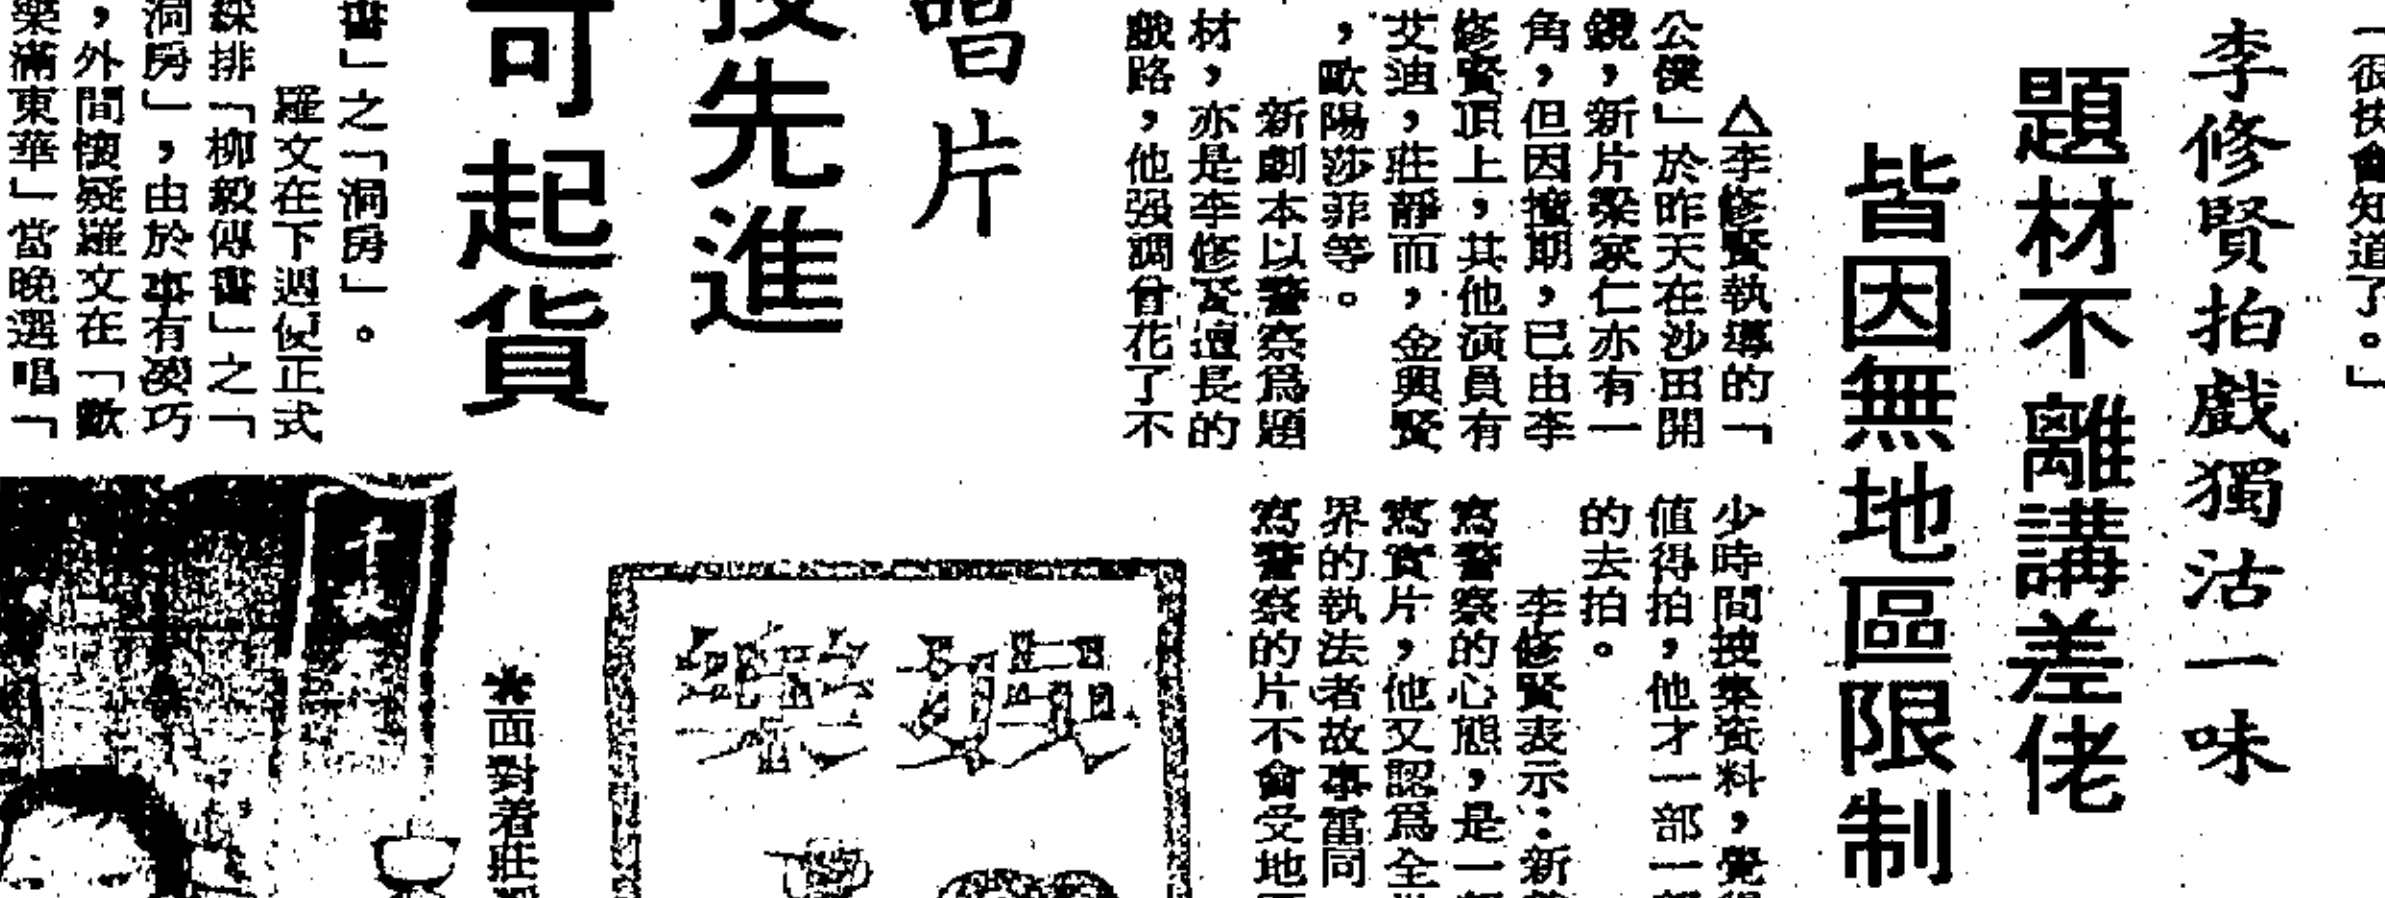 「很快會知道了。」
李修賢拍戲獨沽一味
題材不離講差佬
皆因無地區限制
△李修賢執導的「
公僕」於昨天在沙田開
鏡，新片梁家仁亦有一
角，但因撞期，已由李
修賢頂上，其他演員有
艾迪，莊靜而，金興賢
，歐陽莎菲等。
新劇本以警察爲題
材，亦是李修賢擅長的
戲路，他强調曾花了不
少時間搜集資料，覺得
值得拍，他才一部一部
的去拍。
李修賢表示：新
寫警察的心態，是一
寫實片，他又認爲全
界的執法者故事雷同
寫警察的片不會受地
唱片
技先進
可起貨
書」之「洞房」。
羅文在下週便正式
綵排「柳毅傳書」之「
洞房」，由於事有湊巧
，外間懷疑羅文在「歡
樂滿東華」當晚選唱「
＊面對着莊